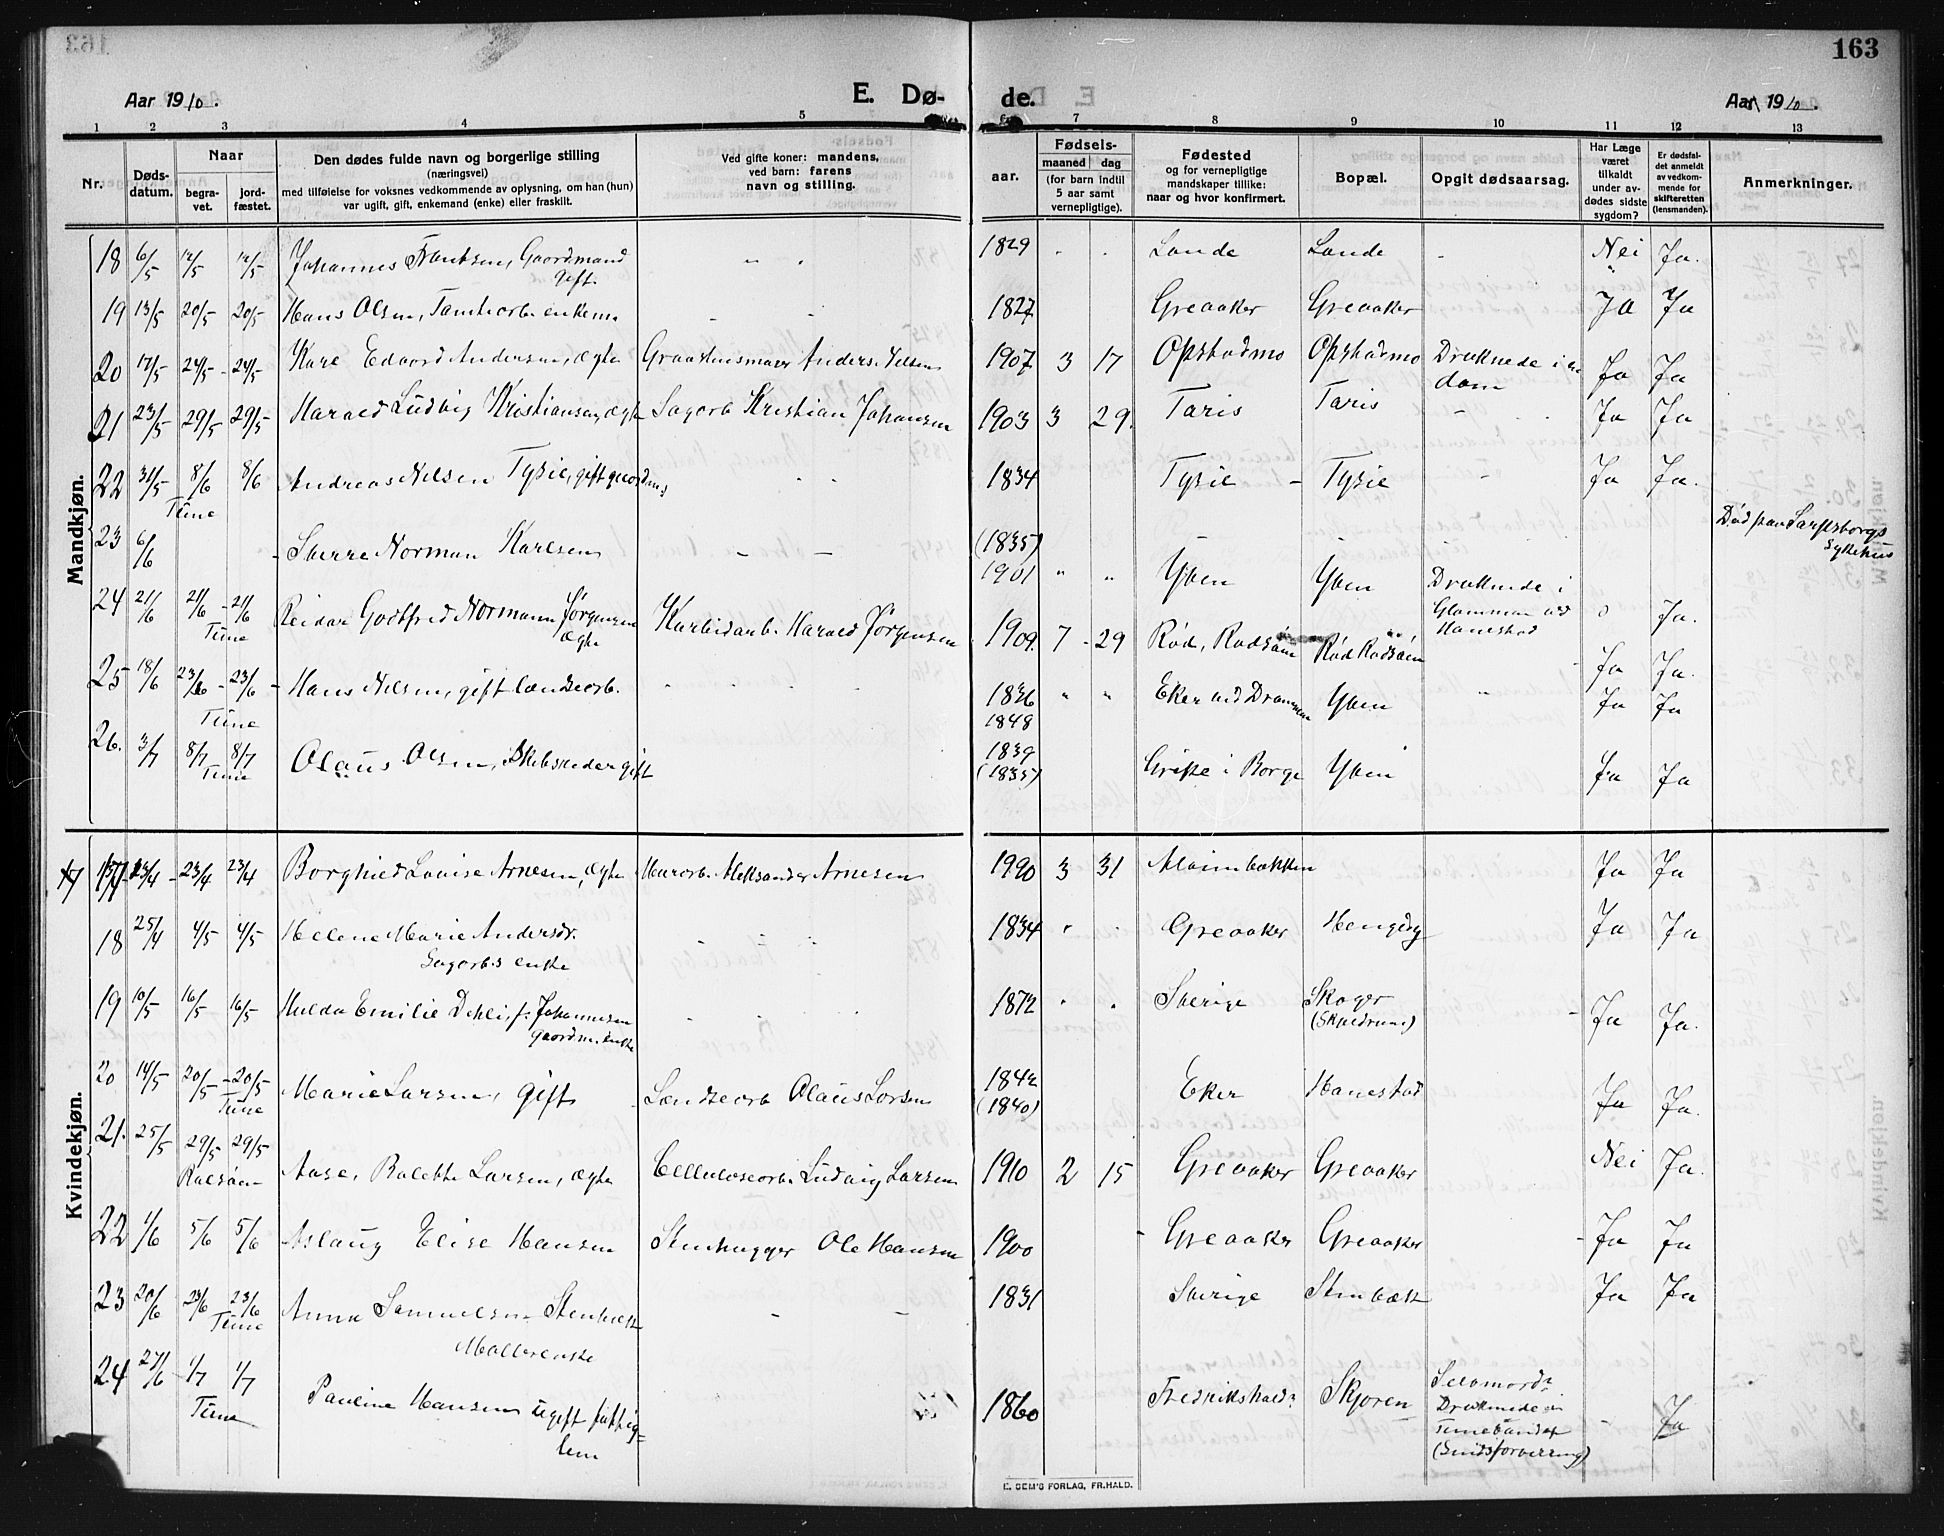 163
Aar 1910.
E. Dø-
de.
Aar 1910.
1 2 3 4 5 6 7 8 9 10 11 12 13
Nr.
Døds-
datum.
Naar
begra-
vet.
jord-
fæstet.
Den dødes fulde navn og borgerlige stilling
(næringsvei)
med tilføielse for voksnes vedkommende av oplysning, om han (hun)
var ugift, gift, enkemand (enke) eller fraskilt.
Ved gifte koner: mandens,
ved barn: farens
navn og stilling.
Fødsels-
aar.
maaned dag
(for barn indtil
5 aar samt
vernepligtige).
Fødested
og for vernepligtige
mandskaper tillike:
naar og hvor konfirmert.
Bopæl.
Opgit dødsaarsag.
Har Læge
været
tilkaldt
under av-
dødes sidste
sygdom?
Er dødsfal-
det anmeldt
av vedkom-
mende for
skifteretten
(lensmanden).
Anmerkninger.
Mandkjøn.
18 6/5 12/5 12/5 Johannes Frantsen, Gaardmand 1829 Lande Lande Nei Ja.
gift.
19 13/5 20/5 20/5 Hans Olsen, 1827 Greaaker Greaaker Ja Ja
20 17/5 24/5 - 24/5 Kare Edvard Andersen, ægte Anders Nilsen 1907 3 17 Opstadmo Opstadmo Druknede i en Ja Ja
dam
21 23/5 29/5 29/5 Harald Ludvig Kristiansen, ægte Sagarb Kristian Johansen 1903 3 29. Taris Taris Ja Ja
22 31/5 8/6 8/6 Andreas Nilsen Tysie, gift gaardm. 1834 Tysie - Tysie Ja Ja.
Tune
23 6/6 Sverre Norman Karlsen (1835) Død paa Sarpsborgs
Sykehus
1901 Yven Yven Druknede i
Glommen ved
Hanestad
Ja.
24 21/6 21/6 - 21/6 Reidar Godtfred Normann Jørgensen Karbidarb. Harald Jørgensen 1909. 7 - 29 Rød, Rødsøen Rød Rødsøen Ja Ja.
Tune ægte
25 18/6 23/6 - 23/6 - Hans Nilsen, gift landsearb. 1836 Eker ved Drammen Yven Ja Ja
Tune 1848
26. 3/7 8/7 8/7 Olaus Olsen, Skibsreder gift 1839 Greåker i Borge Yven Ja Ja
Tune (1835)
Kvindekjøn.
17 23/4 - 23/4 23/4 Borghild Lovise Arnesen, ægte Murarb. Aleksander Arnesen 1990 3 31 Alvimbakken Ja Ja
18 25/4 4/5 4/5 Helene Marie Andersdr. 1834 Greaaker Hengidg Ja Ja
Sagarb.s enke
19 10/5 16/5 16/5 Hulda Emilie Dehli, f. Johannesen 1872 Sverige Skoger Ja Ja.
gaardm. enke (Skjeldrum)
20 14/5 20/5 - 20/5 Marie Larsen, gift Landsearb Olaus Larsen 1842 Eker Hanestad Ja Ja.
Tune (1840)
21. 25/5 29/5 29/5 Aase, Bolette Larsen, ægte Cellulosearb. Ludvig Larsen 1910 2 15 Greaaker Greaaker Nei Ja.
Rolsøen
22 1/6 5/6 5/6 Aslaug Elise Hansen Stenhugger Ole Hansen 1900 Greaaker Greaaker Ja Ja
23 20/6 23/6 23/6 Anna Samuelsen Stenbæk 1831 Sverige Stenbæk Ja Ja
Tune Møllerenke
24 27/6 1/7 1/7 Pauline Hansen ugift fattig= 1860 Fredrikshald? Skjøren Selvmord? Ja
Tune lem Druknede i
Tunevandet
(Sindsforvirring)
E. SEM'S FORLAG, FR.HALD.